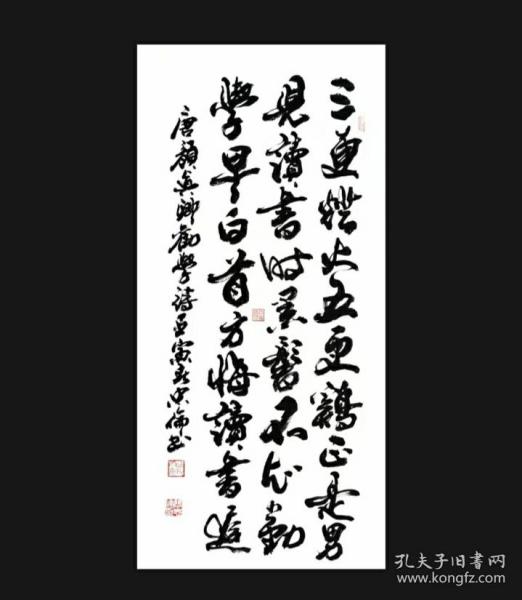 三更燈火五更鷄正是男
兒讀書時黑髮不知勤
學早白首方悔讀書遲
唐顏真卿勸學詩寅春書
孔夫子旧书网
www.kongfz.com